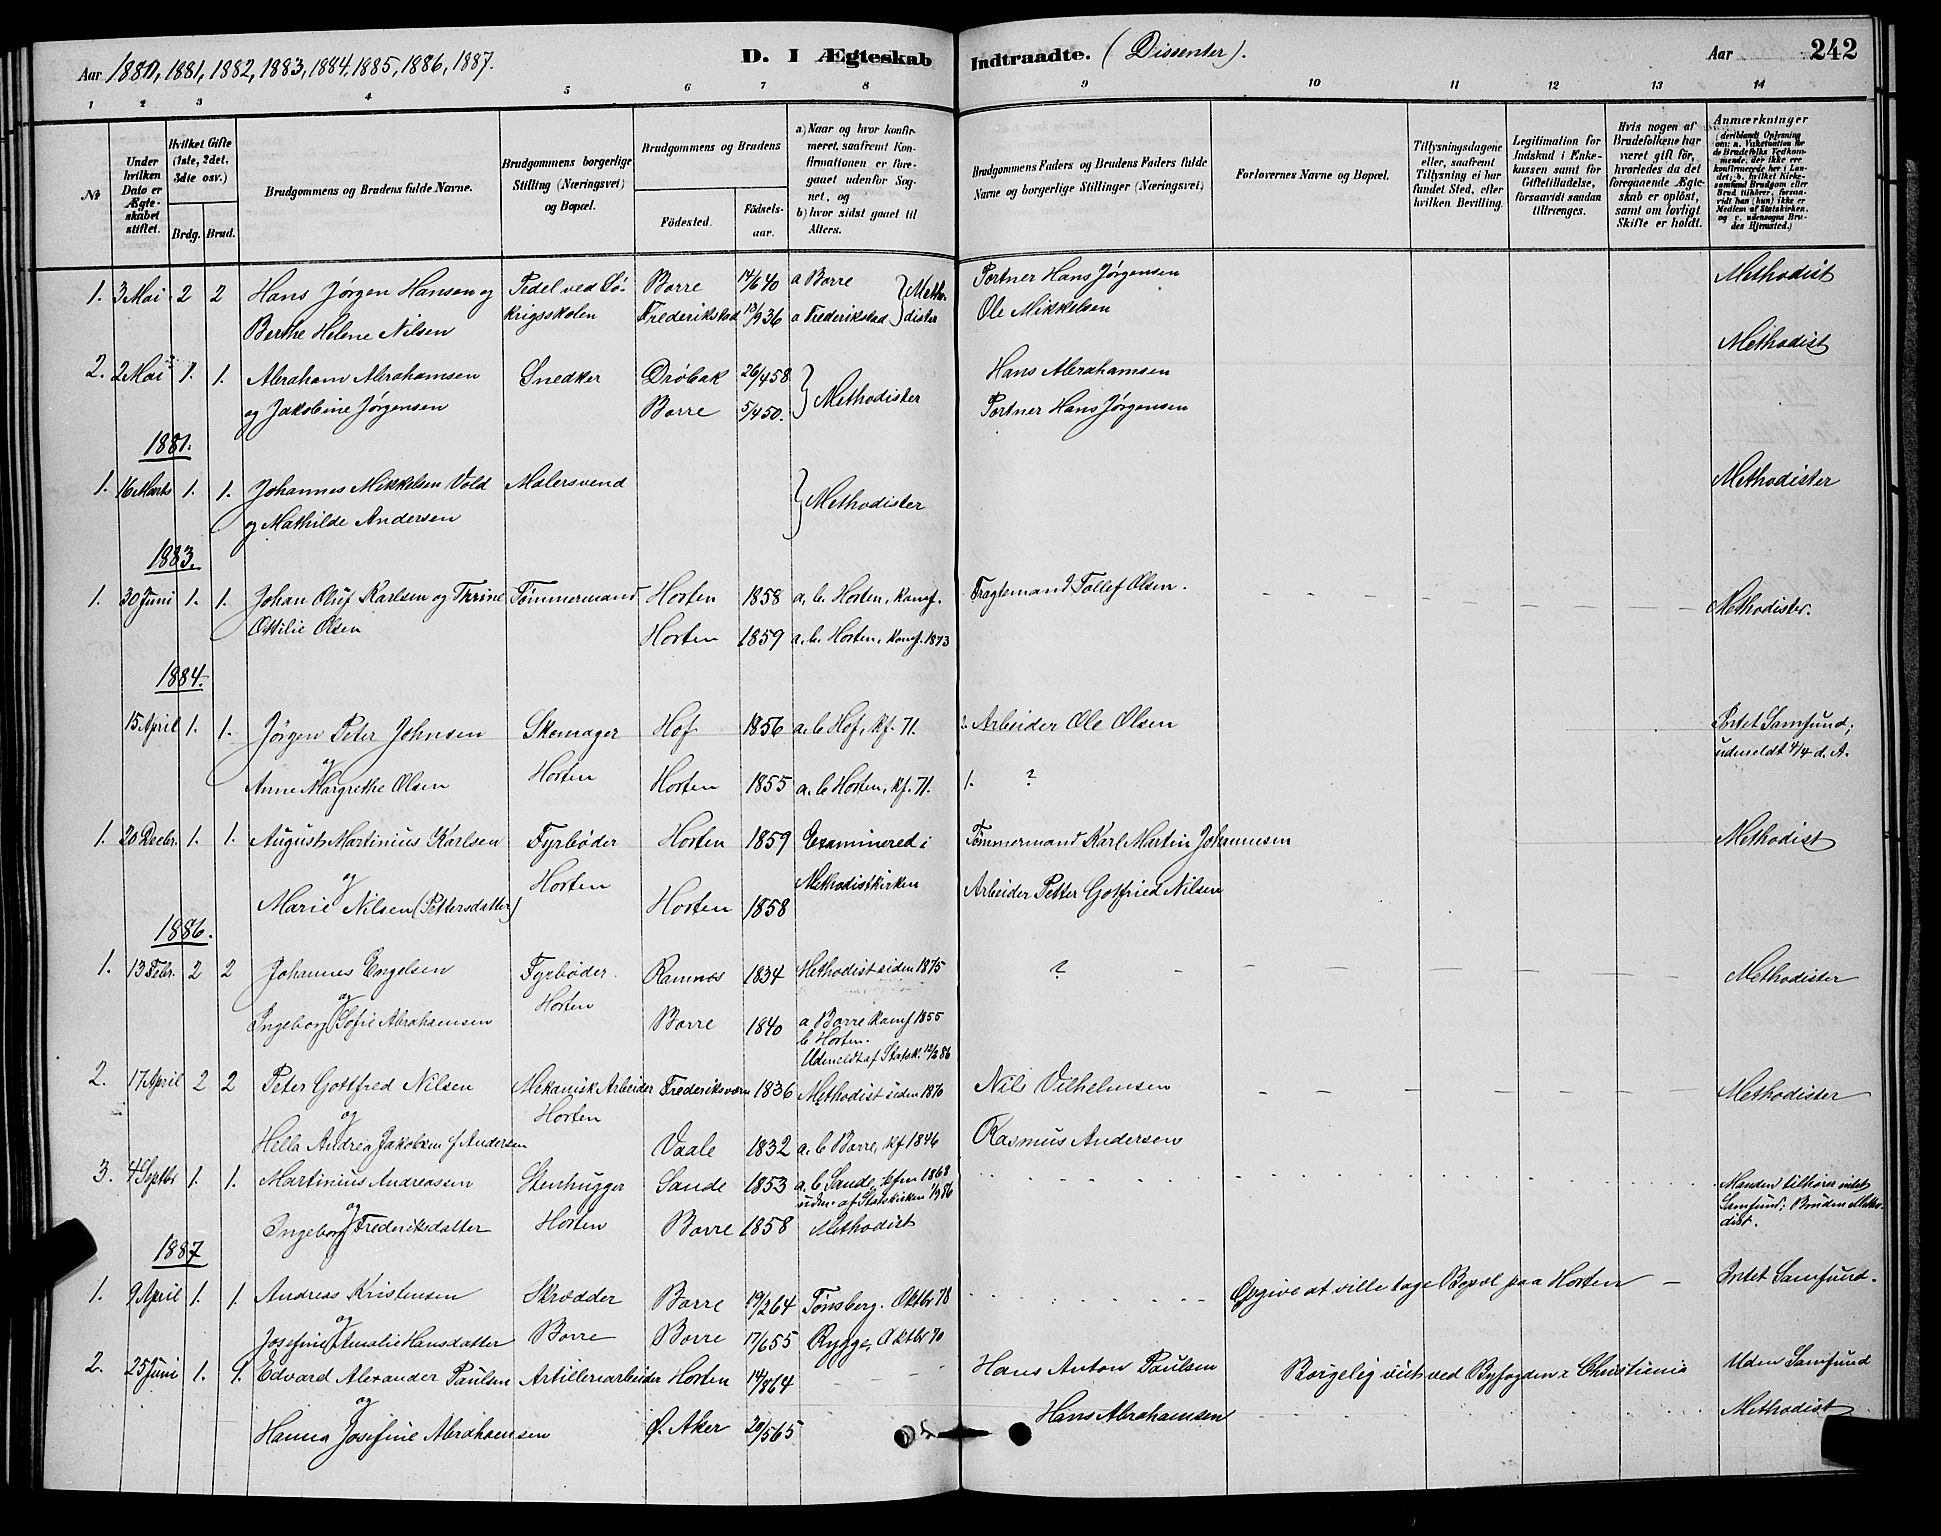 Aar 1880, 1881, 1882, 1883, 1884, 1885, 1886, 1887.
D. I Ægteskab Indtraadte. (Dissenter).
Aar 242
1 2 3 4 5 6 7 8 9 10 11 12 13 14
№
Under hvilken Dato er Ægteskabet stiftet.
Hvilket Gifte (1ste, 2det, 3die osv.)
Brdg. Brud.
Brudgommens og Brudens fulde Navne.
Brudgommens borgerlige Stilling (Næringsvei) og Bopæl.
Brudgommens og Brudens
Födested. Födsels-aar.
a) Naar og hvor konfirmeret, saafremt Konfirmationen er foregaaet udenfor Sognet, og
b) hvor sidst gaaet til Alters.
Brudgommens Faders og Brudens Faders fulde Navne og borgerlige Stillinger (Næringsvei)
Forlovernes Navne og Bopæl.
Tillysningsdagene eller, saafremt Tillysning ei har fundet Sted, efter hvilken Bevilling.
Legitimation for Indskud i Enkekassen samt for Giftetilladelse, forsaavidt saadan tiltrænges.
Hvis nogen af Brudefolkene har været gift för, hvorledes da det foregaaende Ægteskab er oplöst, samt om lovligt Skifte er holdt.
Anmærkninger
(deriblandt Oplysning om: a. Vakcination for de Brudefolks Vedkommende, der ikke ere konfirmerede her i Landet; b. hvilket Kirkesamfund Brudgom eller Brud tilhører, forsaavidt han (hun) ikke er Medlem af Statskirken, og c. udensogns Brudes Hjemsted.)
1. 3 Mai 2 2 Hans Jørgen Hansen og Pedel ved Sø- Borre 14/6 40 a Borre } Metho- Portner Hans Jørgensen Methodist
Berthe Helene Nilsen krigsskolen Frederikstad 13/9 36 a Frederikstad } dister Ole Mikkelsen Methodist
2. 2 Mai 1. 1. Abraham Abrahamsen Snedker Drøbak 26/4 58 } Methodister Hans Abrahamsen
og Jakobine Jørgensen Borre 5/4 50. Portner Hans Jørgensen
1881.
1. 16 Marts 1. 1. Johannes Mikkelsen Vold Malersvend } Methodister Methodister
og Mathilde Andersen
1883.
1. 30 Juni 1. 1. Johan Oluf Karlsen og Thrine Tømmermand Horten 1858 a, b. Horten, Konf. Fragtemand Tollef Olsen. Methodister.
Ottilie Olsen Horten 1859 a. b. Horten, Konf. 1873
1884.
15 April 1. 1. Jørgen Peter Johnsen Skomager Hof 1856 a. b Hof, kf. 71. 2. Arbeider Ole Olsen Intet Samfund;
og Horten udmeldt 4/4 d. A.
Anne Margrethe Olsen Horten 1855 a. b Horten, kf. 71. 1. ?
1. 20 Decbr. 1. 1. August Martinius Karlsen Fyrbøder Horten 1859 Examinered i Tømmermand Karl Martin Johannesen Methodist
og Horten Methodistkirken
Marie Nilsen (Pettersdatter) Horten 1858 Arbeider Petter Gotfried Nilsen
1886.
1. 13 Febr. 2 2 Johannes Engelsen Fyrbøder. Ramnæs 1834 Methodist siden 1875 ? Methodister
og Horten
Ingeborg Sofie Abrahamsen Borre 1840 a Borre Konf 1855
b Horten.
Udmeldt af Statsk. 12/2 86
2. 17 April 2 2 Peter Gottfred Nilsen Mekanisk Arbeider Frederiksværn 1836 Methodist siden 1870 Nils Vilhelmsen Methodister
og Horten
Hella Andrea Jakobsen f. Andersen Vaale 1832 a. b Borre, kf 1846 Rasmus Andersen
3. 4 Septbr 1. 1. Martinius Andreassen Stenhugger Sande 1853 a. b Sande, kfm 1868 Manden tilhører intet
og Horten udm. af Statskirken 1/3 86 Samfund; Bruden Metho-
Ingeborg Frederiksdatter Borre 1858 Methodist dist.
1887
1. 9 April 1. 1. Andreas Kristensen Skrædder Borre 19/2 64 Tønsberg. Oktbr 78 Opgive at ville tage Bopæl paa Horten Intet Samfund.
og Borre
Josefine Amalie Hansdatter Borre 17/6 55 Rygge, Oktbr 70
2. 25 Juni 1. 1. Edvard Alexander Paulsen Artilleriarbeider Horten 14/8 64 Hans Anton Paulsen Borgelig viet ved Byfogden i Christiania Uden Samfund
og
Hanna Josefine Abrahamsen Ø. Aker 20/5 65 Hans Abrahamsen Methodist